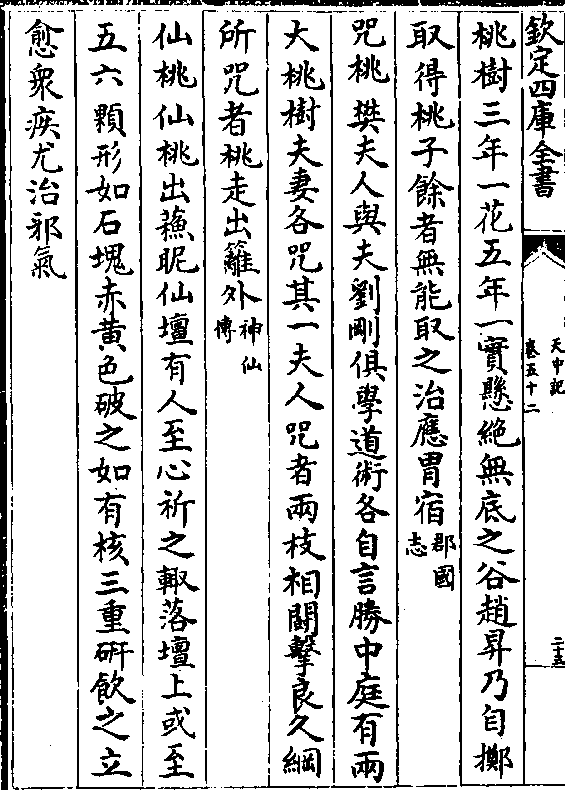 欽定四庫全書
天中記
卷五十二
二十五
桃樹三年一花五年一實懸絶無底之谷趙昇乃自擲
取得桃子餘者無能取之治應胃宿郡國志
咒桃樊夫人與夫劉剛俱學道術各自言勝中庭有兩
大桃樹夫妻各咒其一夫人咒者兩枝相鬭擊良久綱
所咒者桃走出籬外神仙傳
仙桃仙桃出蘓眤仙壇有人至心祈之輙落壇上或至
五六顆形如石塊赤黄色破之如有核三重研飲之立
愈衆疾尤治邪氣